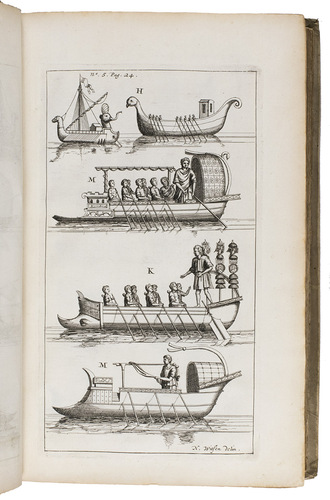 N°. 5. Pag. 24.
H
M
K
M
N. Witsen Delin.